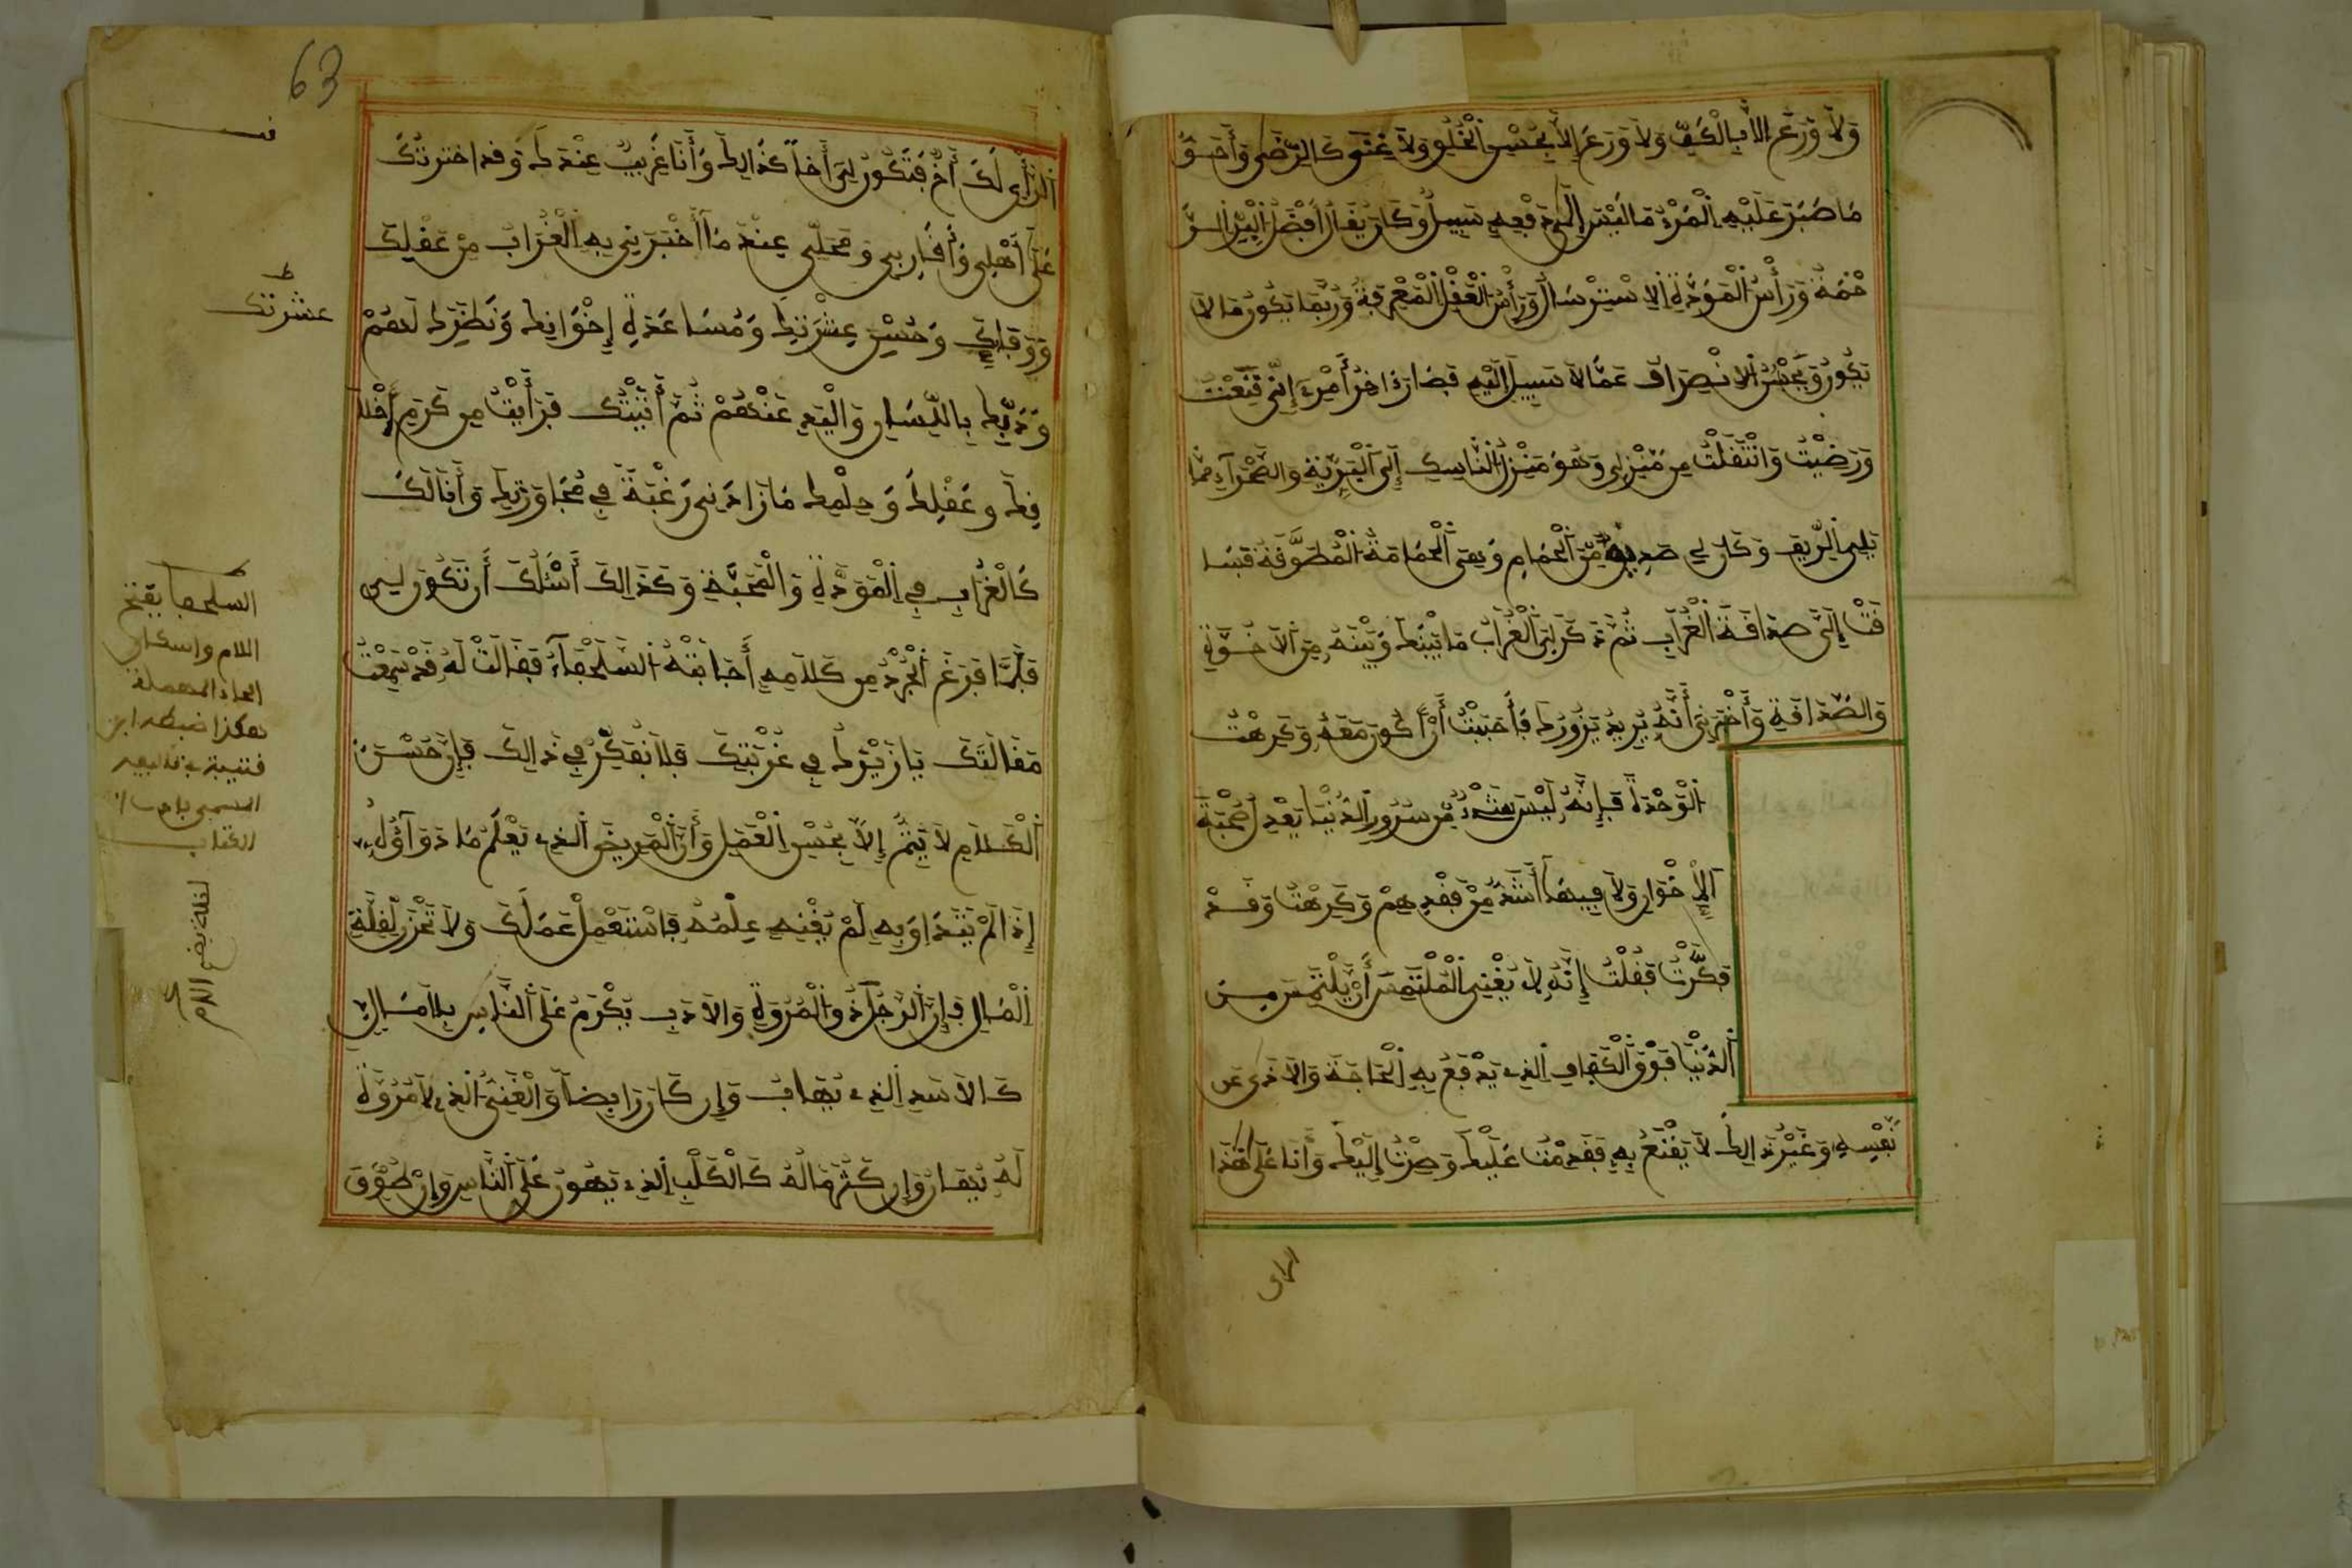 وَلَا وَرَعَ إِلَّا بِالْكَفِّ وَلَا وَرَعَ إِلَّا بِحُسْنِ الْخُلُقِ وَلَا غِنَى كَالرِّضَى وَأَحَقُّ
مَا صُبِرَ عَلَيْهِ الْمَرْءُ مَا لَيْسَ إِلَى دَفْعِهِ سَبِيلٌ وَكَانَ يُقَالُ أَفْضَلُ الْبِرِّ الـرَّ
حْمَةُ وَرَأْسُ الْمَوَدَّةِ الِاسْتِرْسَالُ وَرَأْسُ الْعَقْلِ الْمَعْرِفَةُ وَرُبَّمَا يَكُونُ مَا لَا
يَكُونُ وَيَحْسُنُ الِانْصِرَافُ عَمَّا لَا سَبِيلَ إِلَيْهِ فَصَارَ آخِرُ أَمْرِي إِنِّي قَنِعْتُ
وَرَضِيتُ وَانْتَقَلْتُ مِنْ مَنْزِلِي وَهُوَ مَنْزِلُ النَّاسِكِ إِلَى الْبَرِّيَّةِ وَالصَّحْرَاءِ مِمَّا
يَلِي الرِّيفَ وَكَانَ لِي صَدِيقٌ مِّنَ الْحَمَامِ وَهِيَ الْحَمَامَةُ الْمُطَوَّقَةُ فَسَا
قَتْ إِلَيَّ صَدَاقَةَ الْغُرَابِ ثُمَّ ذَكَرَ لِيَ الْغُرَابُ مَا بَيْنَكَ وَبَيْنَهُ مِنَ الْأُخُوَّةِ
وَالصَّدَاقَةِ وَأَخْبَرَنِي أَنَّهُ يُرِيدُ يَزُورُكَ فَأَحْبَبْتُ أَنْ أَكُونَ مَعَهُ وَكَرِهْتُ
الْوَحْدَةَ فَإِنَّهُ لَيْسَ شَيْءٌ مِّنْ سُرُورِ الدُّنْيَا يَعْدِلُ صُحْبَةَ
الْإِخْوَانِ وَلَا فِيهَا أَشَدُّ مِنْ فَقْدِهِمْ وَكَرِهْتُ وَقَدْ
فَكَّرْتُ فَقُلْتُ إِنَّهُ لَا يَنْبَغِي الْمُلْتَمِسَ أَنْ يَلْتَمِسَ مِنَ
الدُّنْيَا فَوْقَ الْكَفَافِ الَّذِي يَدْفَعُ بِهِ الْحَاجَةَ وَالْأَذَى عَنْ
نَفْسِهِ وَغَيْرُ ذَلِكَ لَا يَنْفَعُ بِهِ فَقَدِمْتُ عَلَيْكَ وَصِرْتُ إِلَيْكَ وَأَنَا عَلَى هَذَا
الراى
63
الرَّأْيِ لَكَ أَخٌ فَتَكُونُ لِيَ أَخًا كَذَلِكَ وَأَنَا غَرِيبٌ عِنْدَكَ وَقَدِ اخْتَرْتُكَ
عَلَى أَهْلِي وَأَقَارِبِي وَمَحَلِّي عِنْدَ مَا أَخْبَرَنِي بِهِ الْغُرَابُ مِنْ عَقْلِكَ
وَوَفَائِكَ وَحُسْنِ عِشْرَتِكَ وَمُسَاعَدَةِ إِخْوَانِكَ وَنَظَرِكَ لَهُمْ
وَذَبِّكَ بِاللِّسَانِ وَالْيَدِ عَنْهُمْ ثُمَّ أَتَيْتُكَ فَرَأَيْتُ مِنْ كَرَمِ أَخْلَا
قِكَ وَعَقْلِكَ وَحِلْمِكَ مَا زَادَنِي رَغْبَةً فِي مُجَاوَرَتِكَ وَأَنَا لَكَ
كَالْغُرَابِ فِي الْمَوَدَّةِ وَالْمَحَبَّةِ وَكَذَلِكَ أَسْئَلُكَ أَنْ تَكُونَ لِي
فَلَمَّا فَرَغَ الْجُرْذُ مِنْ كَلَامِهِ أَجَابَتْهُ السُّلَحْفَاءُ فَقَالَتْ لَهُ قَدْ سَمِعْتُ
مَقَالَتَكَ يَا زَيْرَكُ فِي غُرْبَتِكَ فَلَا تُفَكِّرْ فِي ذَلِكَ فَإِنَّ حَسَنَ
الْكَلَامِ لَا يَتِمُّ إِلَّا بِحُسْنِ الْعَمَلِ وَأَنَّ الْمَرِيضَ الَّذِي يَعْلَمُ مَا دَوَاؤُهُ
إِذَا لَمْ يَتَدَاوَ بِهِ لَمْ يُغْنِهِ عِلْمُهُ فَاسْتَعْمِلْ عَمَلَكَ وَلَا تَحْزَنْ لِقِلَّةِ
الْمَالِ فَإِنَّ الرَّجُلَ ذُو الْمُرُوَّةِ وَالْأَدَبِ يُكْرَمُ عَلَى النَّاسِ بِلَا مَالٍ
كَالْأَسَدِ الَّذِي يُهَابُ وَإِنْ كَانَ رَابِضًا وَالْغَنِيُّ الَّذِي لَا مُرُوَّةَ
لَهُ يُهَانُ وَإِنْ كَثُرَ مَالُهُ كَالْكَلْبِ الَّذِي يَهُونُ عَلَى النَّاسِ وَإِنْ طُوِّقَ
ط
عشرتك
السلحفا بفتح
اللام واسكان
الحاء المهملة
هكذا ضبطه ابن
قتيبة في تاليفه
المسمى بادب
الكتاب